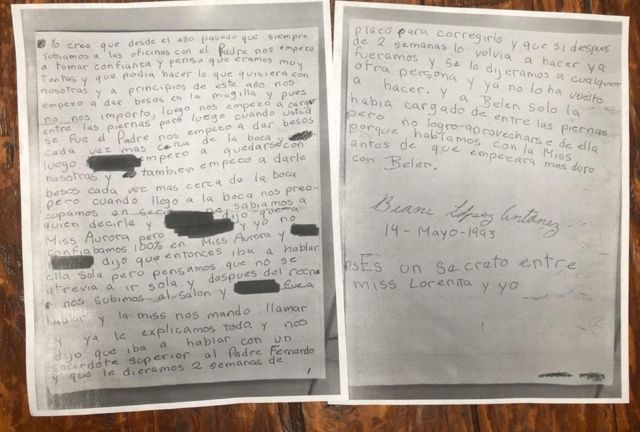 Yo creo que desde el año pasado que siempre
subiamos a las oficinas con el Padre nos empezo
a tomar confianza y penso que eramos muy
tontas y que podia hacer lo que quisiera con
nosotras y a principios de este año nos
empezo a dar besos en la megilla y pues
no nos importo, luego nos empezo a cargar
entre las piernas pero luego cuando usted
se fue el Padre nos empezo a dar besos
cada vez mas cerca de la boca y
luego empezo a quedarse con
nosotras y tambien empezo a darle
besos cada vez mas cerca de la boca
pero cuando llego a la boca nos preo-
cupamos en no sabiamos a
quien decirle y dijo que a
Miss Aurora pero y yo no
confiabamos 100% en Miss Aurora y
dijo que entonces iba a hablar
ella sola pero pensamos que no se
atrevia a ir sola y despues del recre
nos subimos al salon y fue a
hablar y la miss nos mando llamar
y ya le explicamos todo, y nos
dijo que iba a hablar con un
sacerdote superior al Padre Fernando
y que le dieramos 2 semanas de
plazo para corregirlo y que si despues
de 2 semanas lo volvia a hacer ya
fueramos y se lo dijeramos a cualquier
otra persona y ya no lo ha vuelto
a hacer. y a Belen solo la
habia cargado de entre las piernas
pero no logro aprovecharse de ella
porque hablamos con la Miss
antes de que empezara mas duro
con Belen.
14-Mayo-1993
ps Es un secreto entre
miss Lorenita y yo